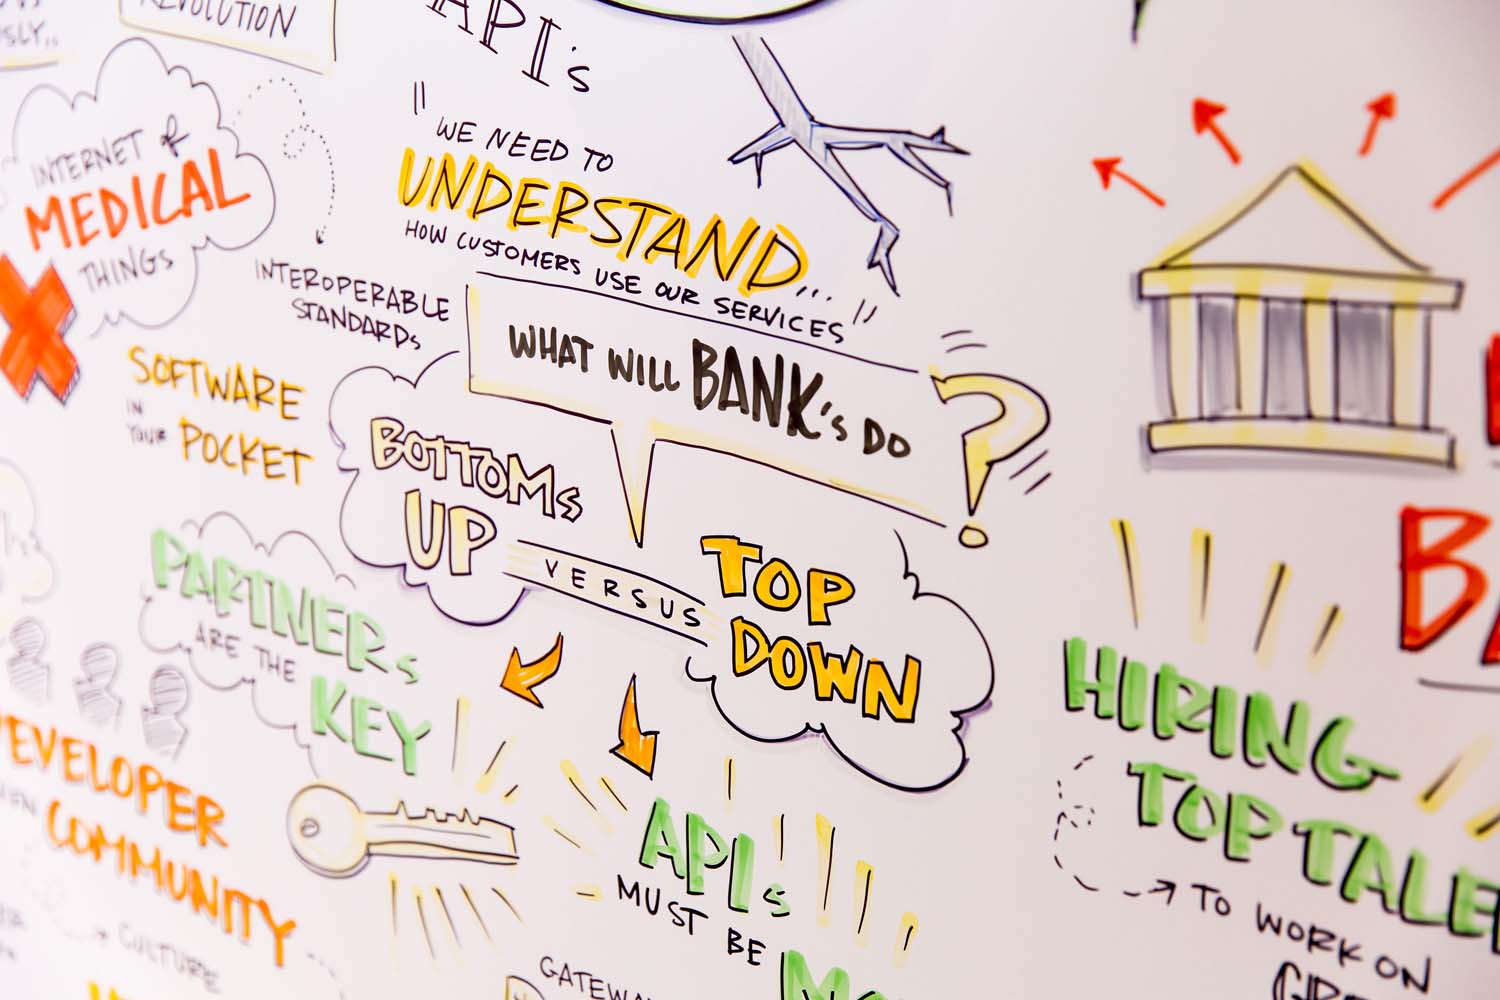 REVOLUTION
API's
"WE NEED TO
UNDERSTAND...
HOW CUSTOMERS USE OUR SERVICES"
INTERNET of
MEDICAL
THINGS
INTEROPERABLE
STANDARDs
WHAT WILL BANK's DO ?
SOFTWARE
IN
YOUR POCKET
BOTTOMs
UP
VERSUS
TOP
DOWN
PARTNERs
ARE THE
KEY
DEVELOPER
COMMUNITY
CULTURE
APIs
MUST BE
GATEWA
HIRING
TOP TALE
TO WORK ON